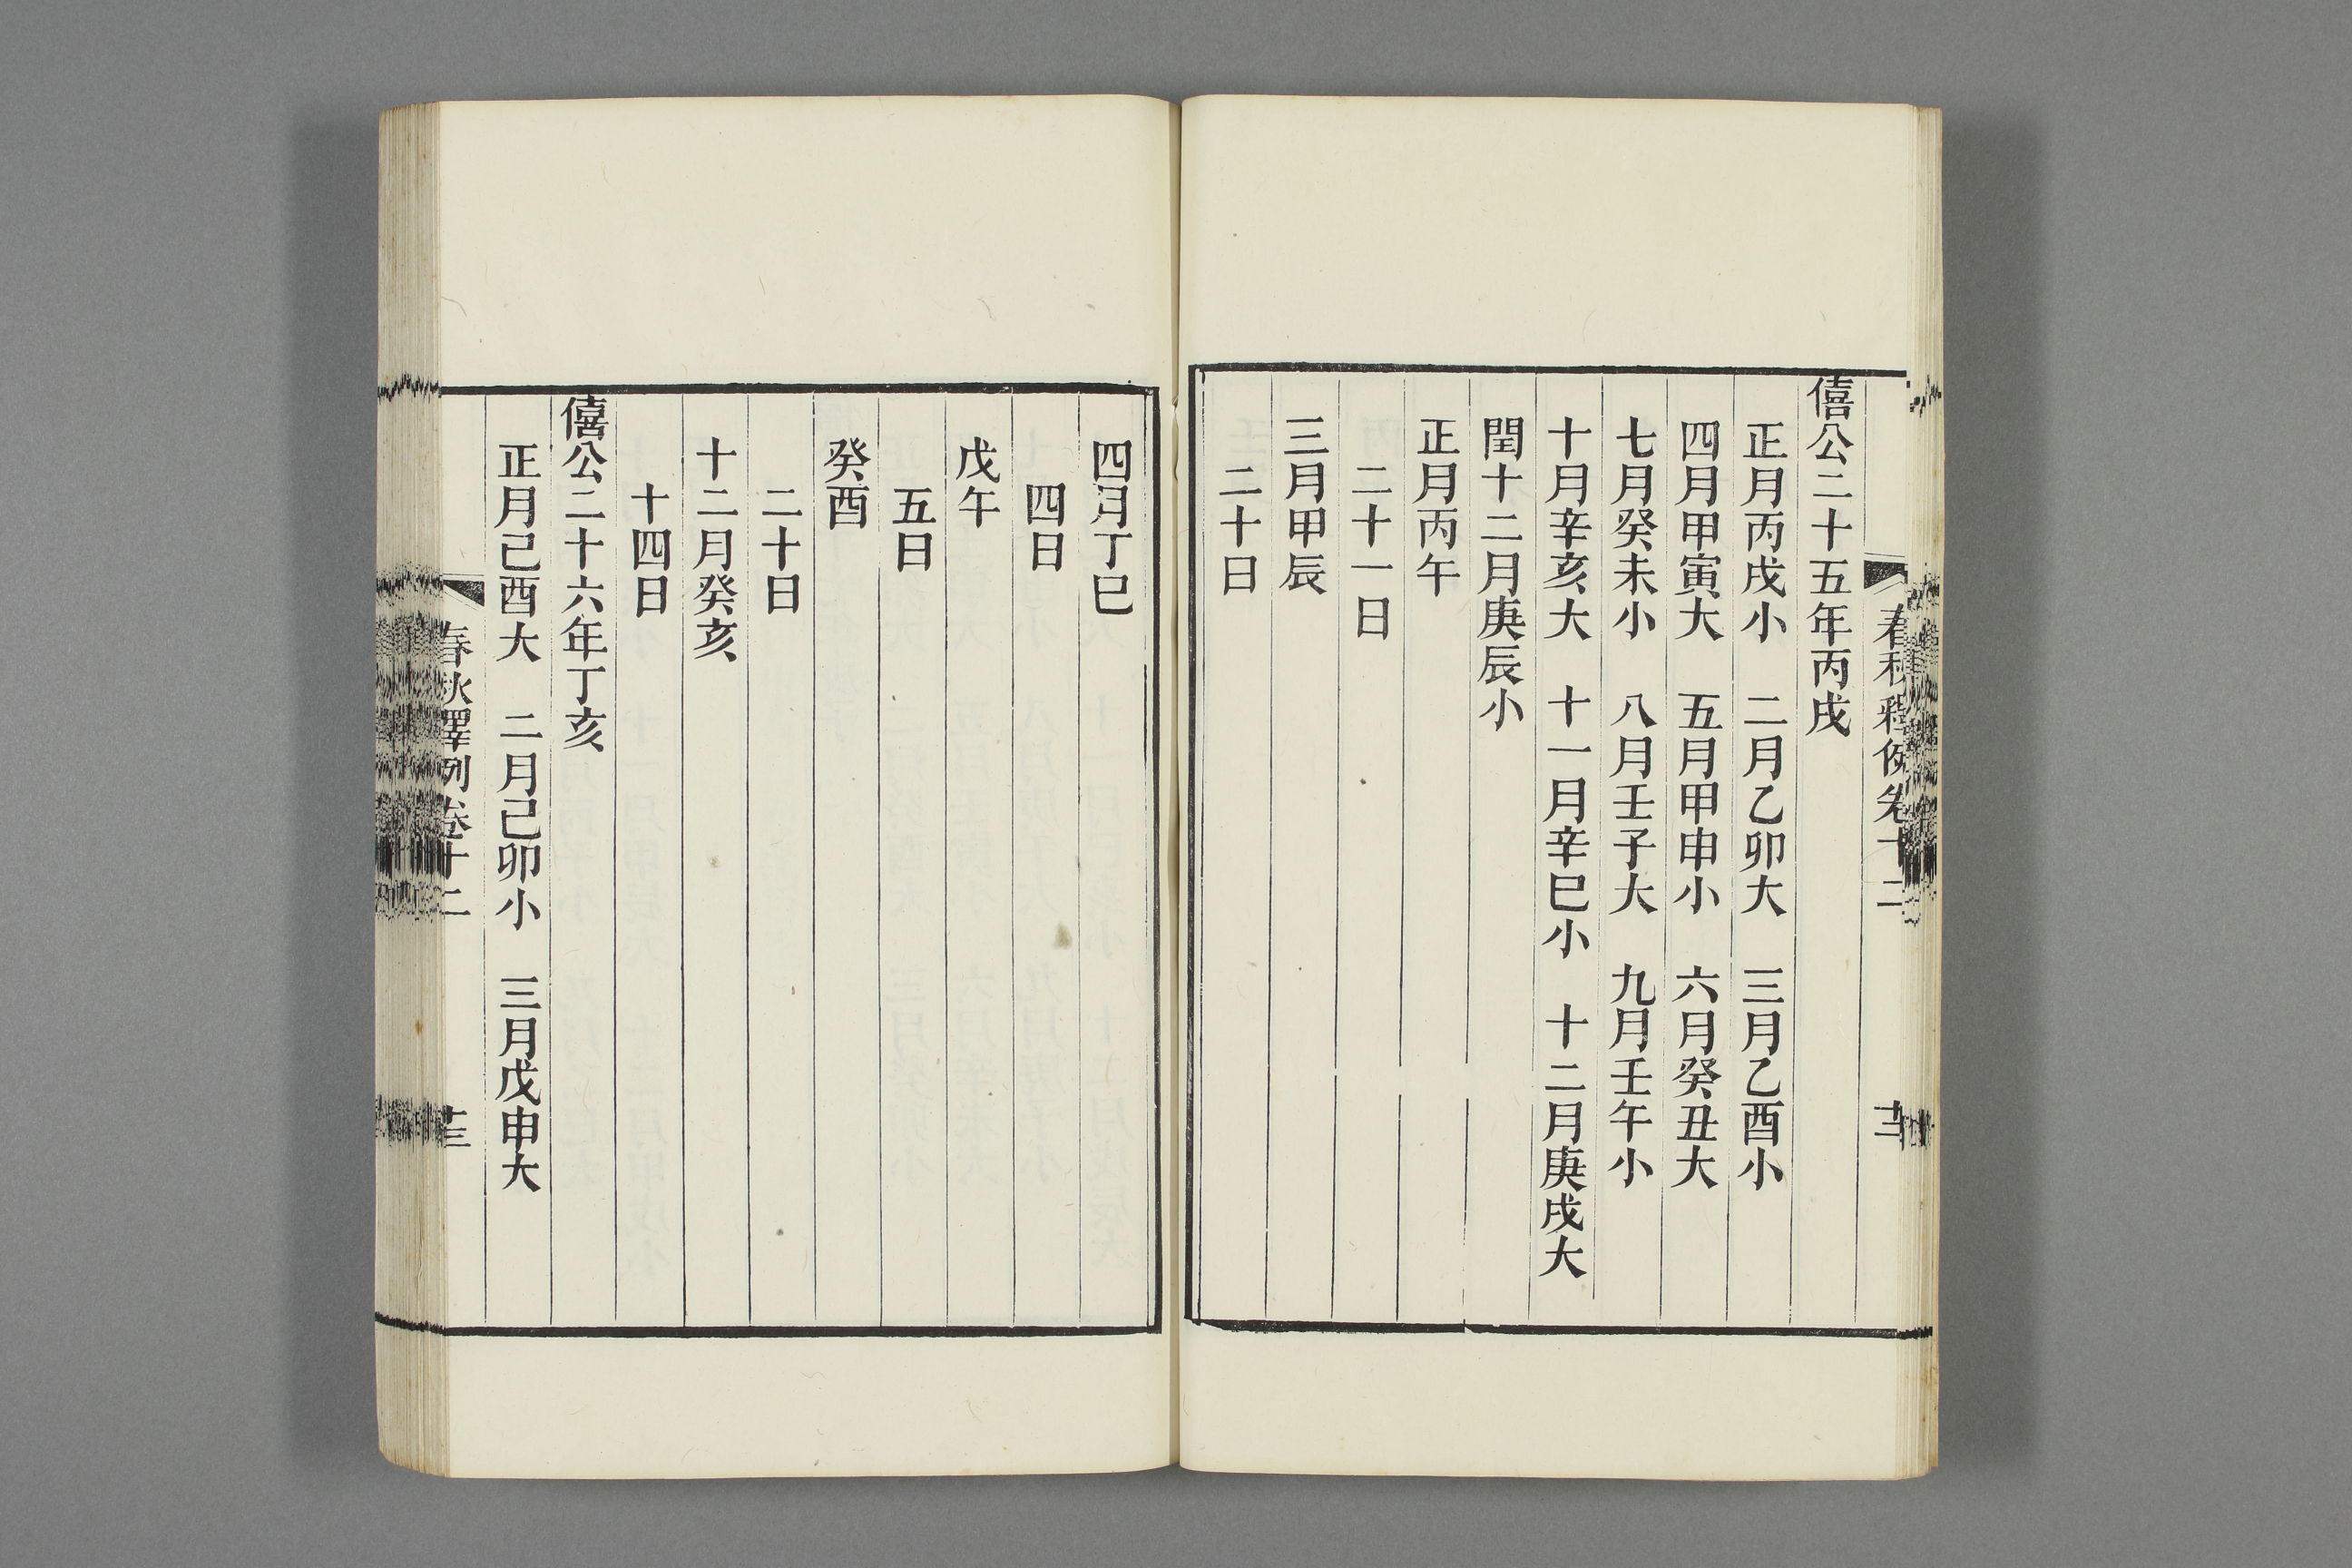 春秋釋例卷十二
十二
僖公二十五年丙戌
正月丙戌小　二月乙卯大　三月乙酉小
四月甲寅大　五月甲申小　六月癸丑大
七月癸未小　八月壬子大　九月壬午小
十月辛亥大　十一月辛巳小　十二月庚戌大
閏十二月庚辰小
正月丙午
二十一日
三月甲辰
二十日
四月丁巳
四日
戊午
五日
癸酉
二十日
十二月癸亥
十四日
僖公二十六年丁亥
正月己酉大　二月己卯小　三月戊申大
春秋釋例卷十二
十三